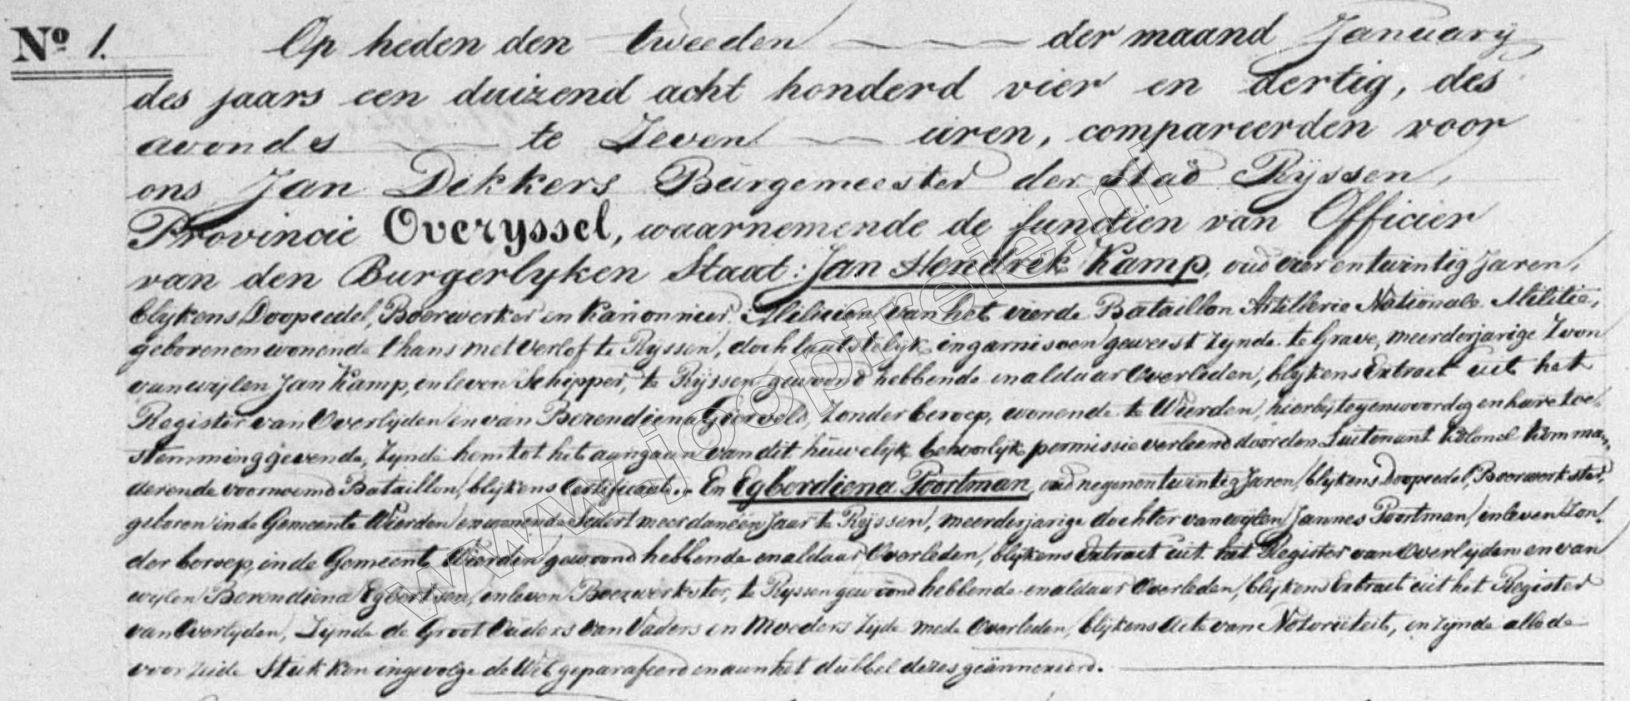 No. 1. Op heden den tweeden der maand January,
des jaars een duizend acht honderd vier en dertig, des
avonds te Zeven uren, compareerden voor
ons Jan Dekkers Burgemeester der Stad Ryssen,
Provincie Overyssel, waarnemende de functien van Officier
van den Burgerlyken Staat: Jan Hendrik Kamp, oud vier en twintig jaren,
blykens Doopcedel, Boerwerker en Kanonnier, Milicien van het vierde Bataillon Artillerie Nationale Militie,
geboren en wonende thans met verlof te Ryssen, doch laatstelyk in garnisoen geweest zynde te Grave, meerderjarige Zoon
van wylen Jan Kamp, in leven Schipper, te Ryssen gewoond hebbende en aldaar Overleden, blykens Extract uit het
Register van Overlyden en van Berendiena Goervels, Zonder beroep, wonende te Wierden, hierby tegenwoordig en hare toe-
stemming gevende, Zynde hem tot het aangaan van dit huwelyk behoorlyk permissie verleend door den Luitenant Kolonel Komman-
derende voornoemd Bataillon, blykens Certificaat. En Egberdiena Poortman, oud negen en twintig Jaren, blykens Doopcedel, Boerwerkster,
geboren in de Gemeente Wierden en wonende Sedert meer dan een Jaar te Ryssen, meerderjarige dochter van wylen Jannes Poortman, in leven Zon-
der beroep, in de Gemeente Wierden gewoond hebbende en aldaar Overleden, blykens Extract uit het Register van Overlyden en van
wylen Berendiena Egbertsen, in leven Boerwerkster, te Ryssen gewoond hebbende en aldaar Overleden, blykens Extract uit het Register
van Overlyden, Zynde de Groot Ouders van Vaders en Moeders Zyde mede Overleden, blykens Acte van Notoriëteit, en zynde alle de
voorzeide Stukken ingevolge de Wet geparafeerd en aan het dubbel dezes geännexeerd.
www.jooptrei.nl